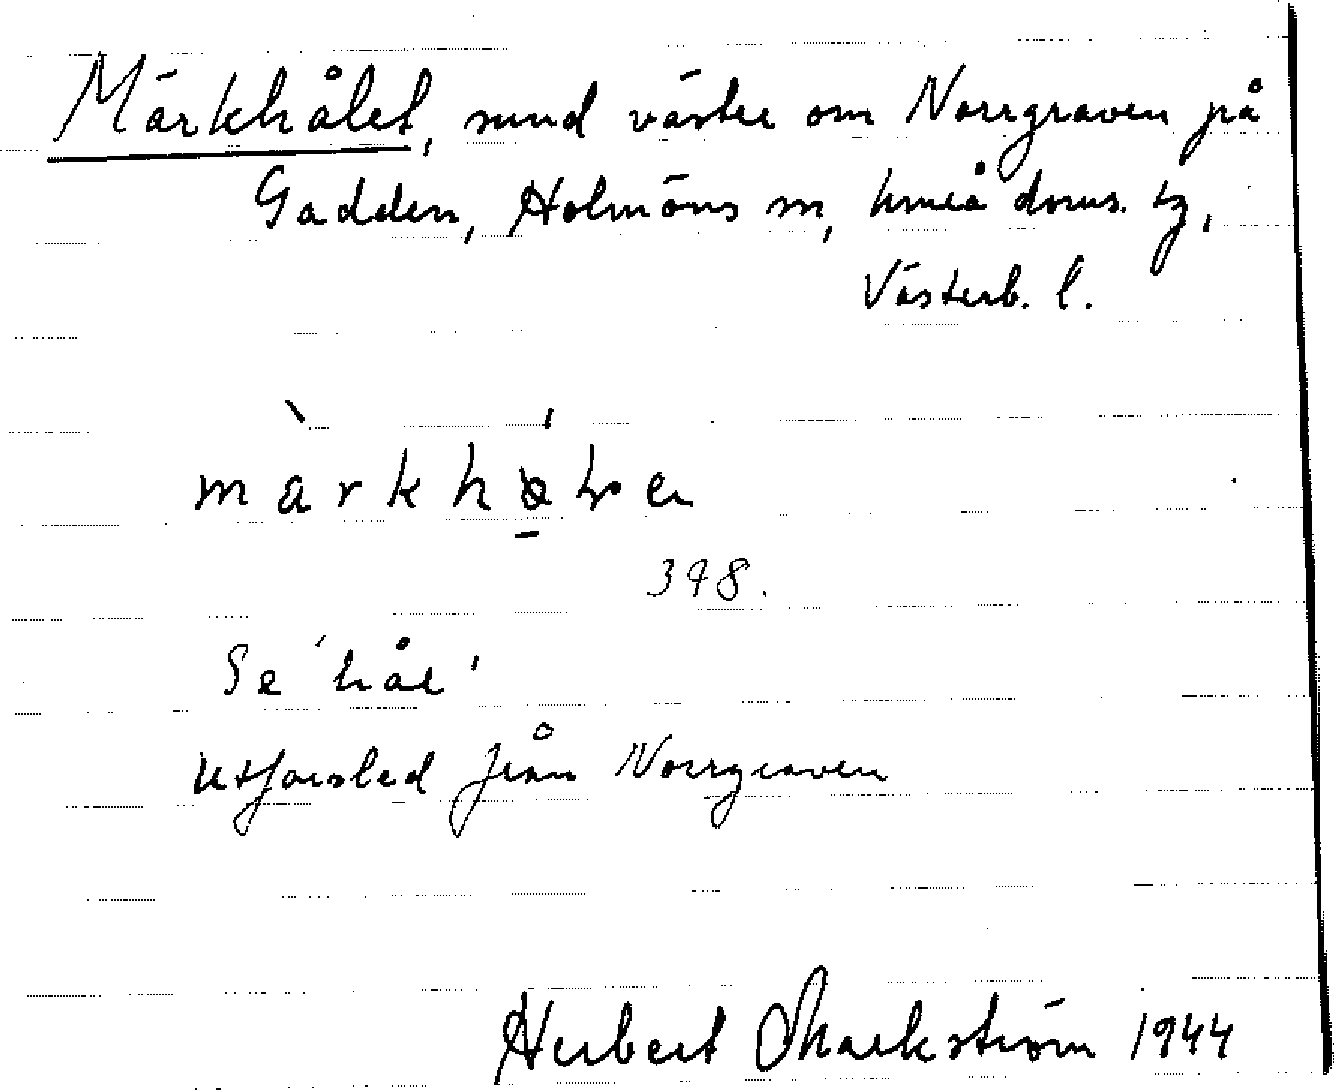 Märkhålet, sund väster om Norrgraven på
Gadden, Holmöns sn, Umeå doms. tg,
Västerb. l.
398.
Se 'hål'
Utfarsled från Norrgraven
Herbert Markström 1944